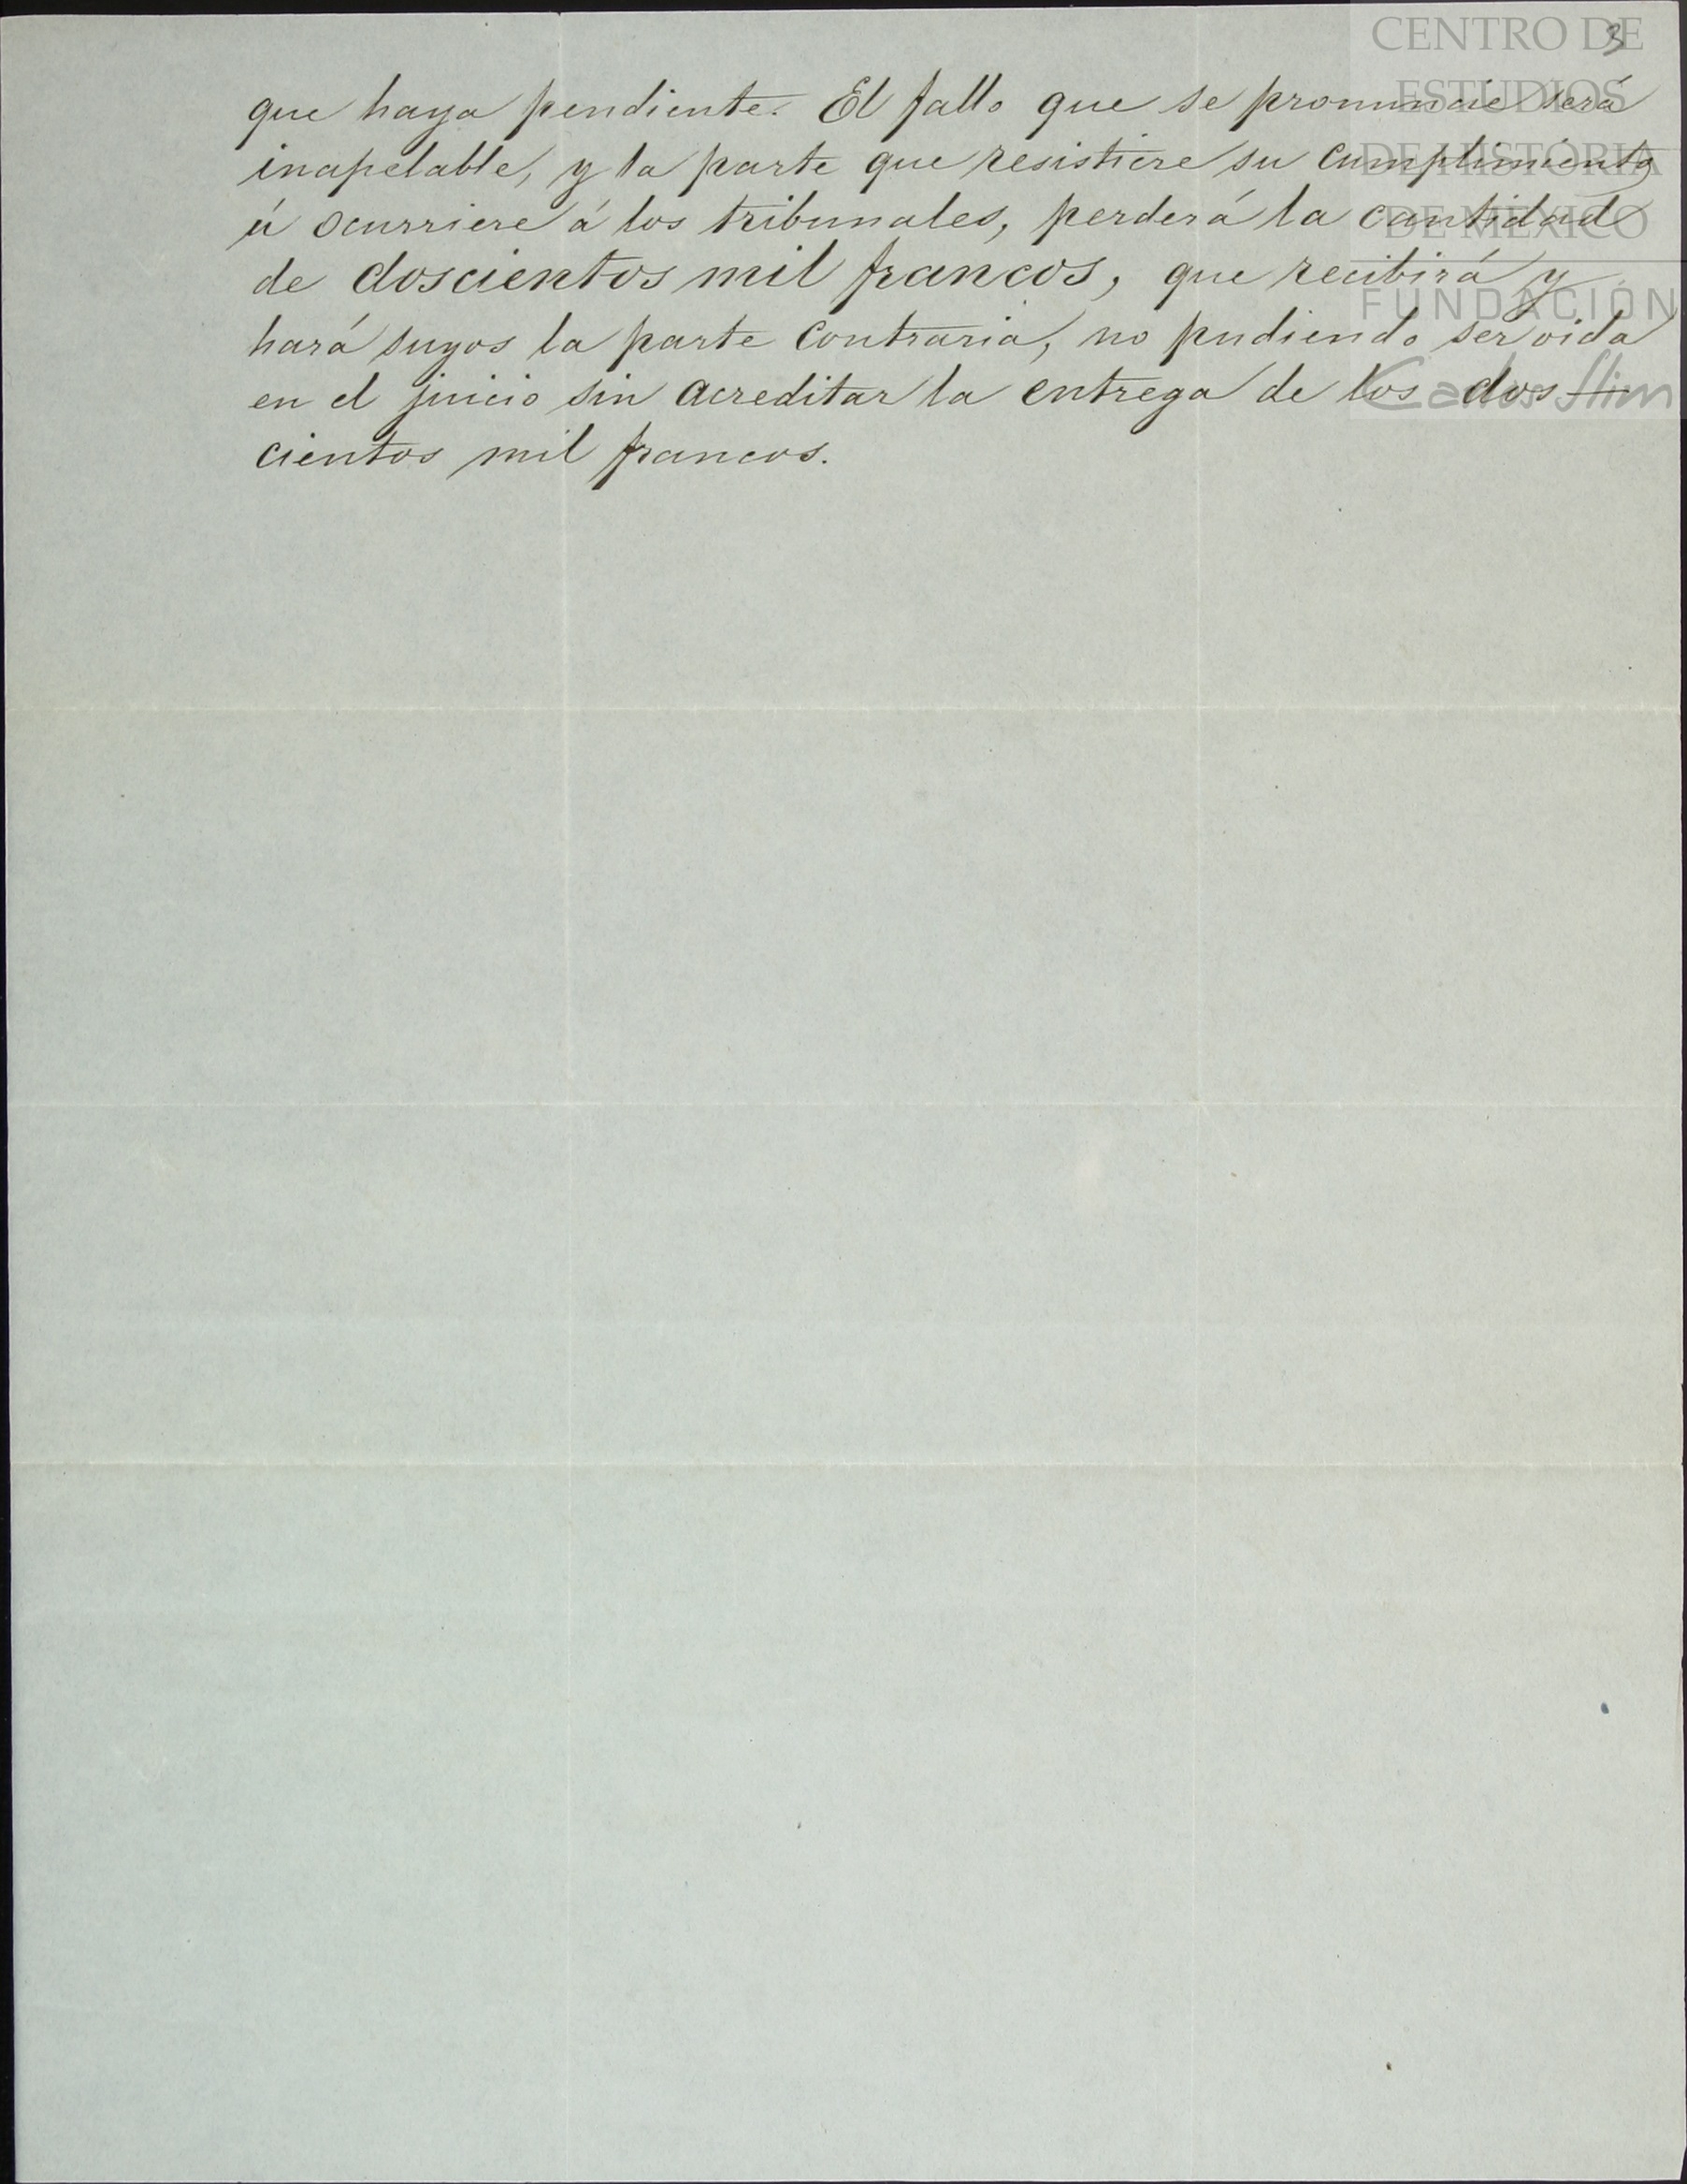 3
CENTRO DE
ESTUDIOS
DE HISTORIA
DE MÉXICO
FUNDACIÓN
Carlos Slim
que haya pendiente. El fallo que se pronuncie será
inapelable, y la parte que resistiere su cumplimiento
ú ocurriere á los tribunales, perderá la cantidad
de doscientos mil francos, que recibirá y
hará suyos la parte contraria, no pudiendo ser oida
en el juicio sin acreditar la entrega de los dos—
cientos mil francos.